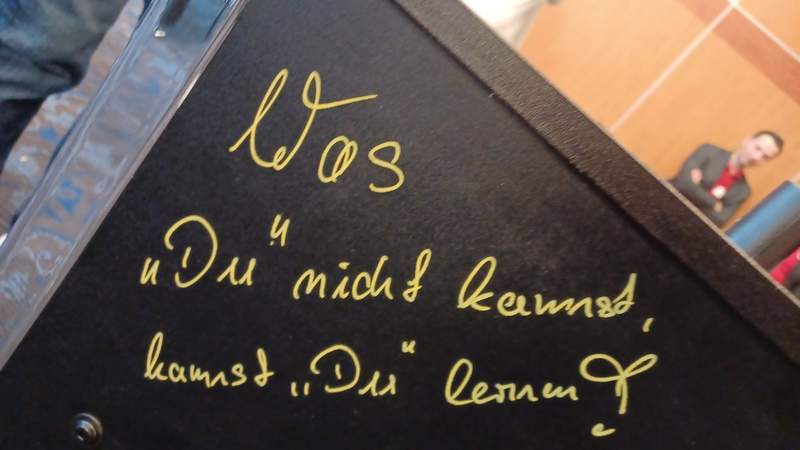 Was
„Du“ nicht kannst,
kannst „Du“ lernen!